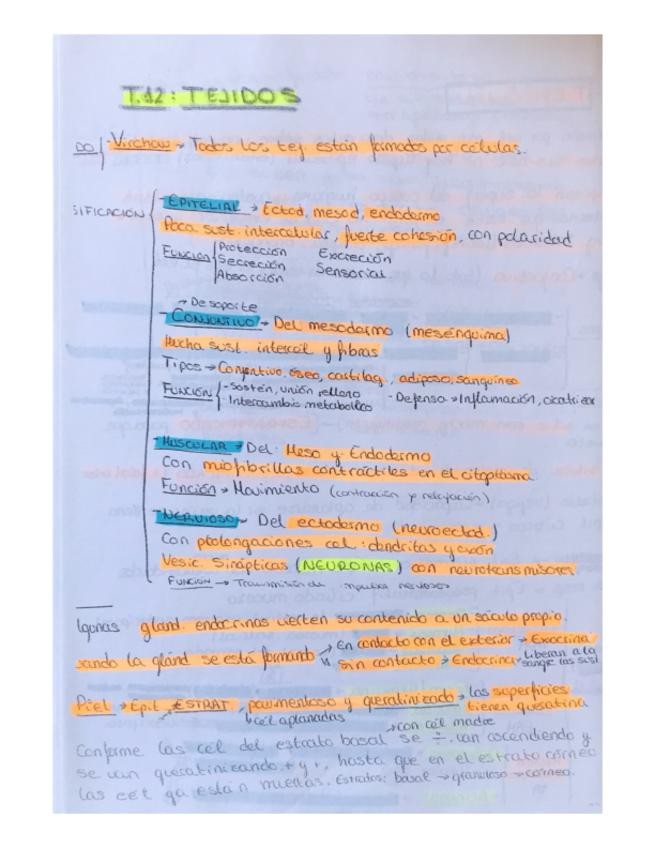 T.12: TEJIDOS
DO Virchow → Todos los tej. están formados por células.
SIFICACIÓN
- EPITELIAL → Ectod, mesod, endodermo
Poca sust. intercelular, fuerte cohesión, con polaridad
FUNCIÓN Protección Excreción
Secreción Sensorial
Absorción
→ De soporte
- CONJUNTIVO → Del mesodermo (mesénquima)
Mucha sust. intercel y fibras
Tipos → Conjuntivo, óseo, cartilag, adiposo, sanguíneo
FUNCIÓN - Sostén, unión relleno - Defensa → Inflamación, cicatriz
- Intercambio metabólico
- MUSCULAR → Del Meso y Endodermo
Con miofibrillas contráctiles en el citoplasma
Función → Movimiento (contracción y relajación)
- NERVIOSO → Del ectodermo (neuroectod.)
Con prolongaciones cel: dendritas y axón
Vesic. Sinápticas (NEURONAS) con neurotransmisores
FUNCIÓN → Transmisión de impulsos nerviosos
lgunas gland. endocrinas vierten su contenido a un sáculo propio.
uando la glánd se está formando → En contacto con el exterior → Exocrina
Sin contacto → Endocrina, liberan a la
sangre las sust
Piel → Epit. ESTRAT, pavimentoso y queratinizado → las superficies
tienen queratina
cél aplanadas → con cél madre
Conforme las cél del estrato basal se ÷, van ascendiendo y
se van queratinizando + y +, hasta que en el estrato córneo
las cel ya están muertas. Estratos: basal → granuloso → córneo.